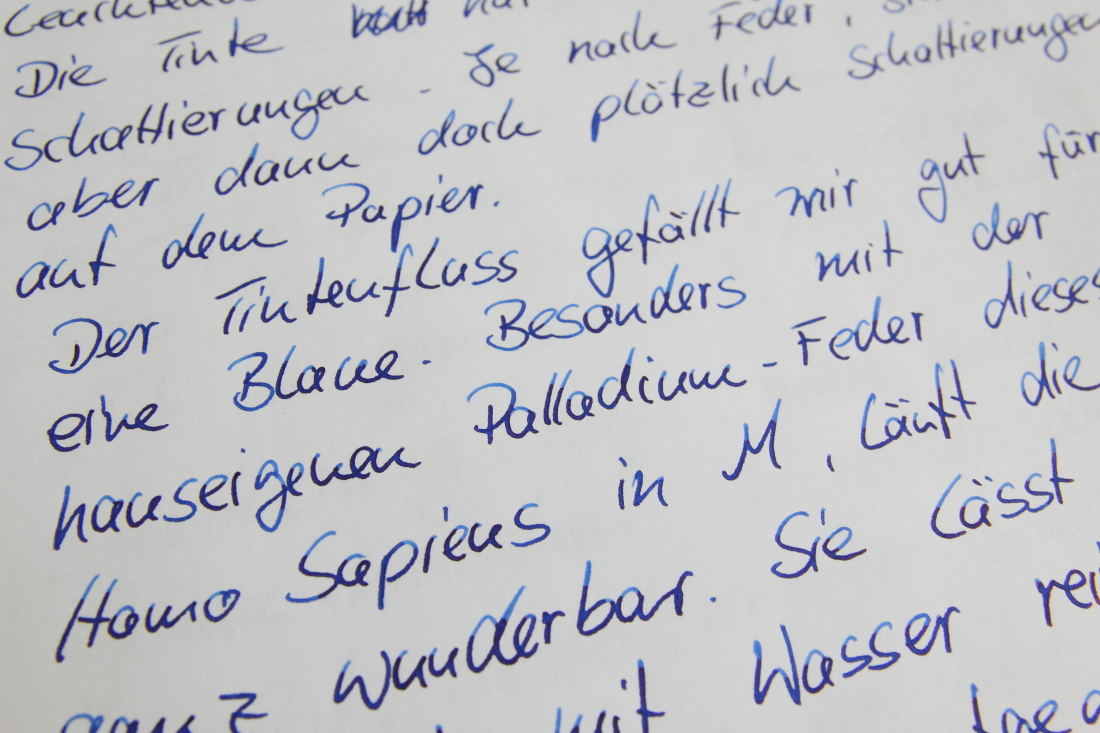 Die Tinte hat
Schattierungen. Je nach Feder,
aber dann doch plötzlich Schattierungen
auf dem Papier.
Der Tintenfluss gefällt mir gut für
eine Blaue. Besonders mit der
hauseigenen Palladium-Feder dieses
Homo Sapiens in M, läuft die
ganz wunderbar. Sie lässt
mit Wasser